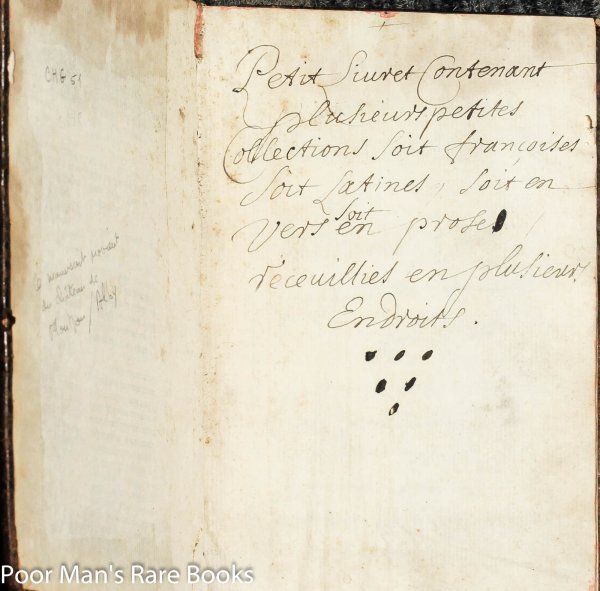 CHG 51
Petit Livret Contenant
plusieurs petites
Collections soit françoises
soit Latines, soit en
vers soit en prose
receuillies en plusieurs
Endroits.
manuscrit provient
du château de
Poor Man's Rare Books